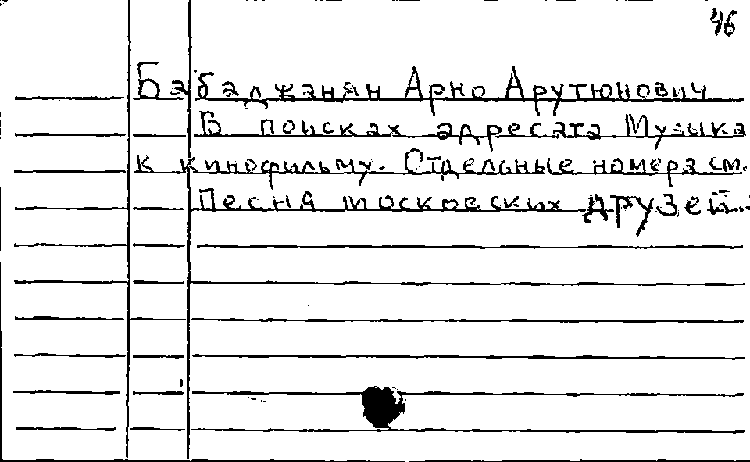 46
Бабаджанян Арно Арутюнович
В поисках адресата. Музыка
к кинофильму. Отдельные номера см.
Песня московских друзей.